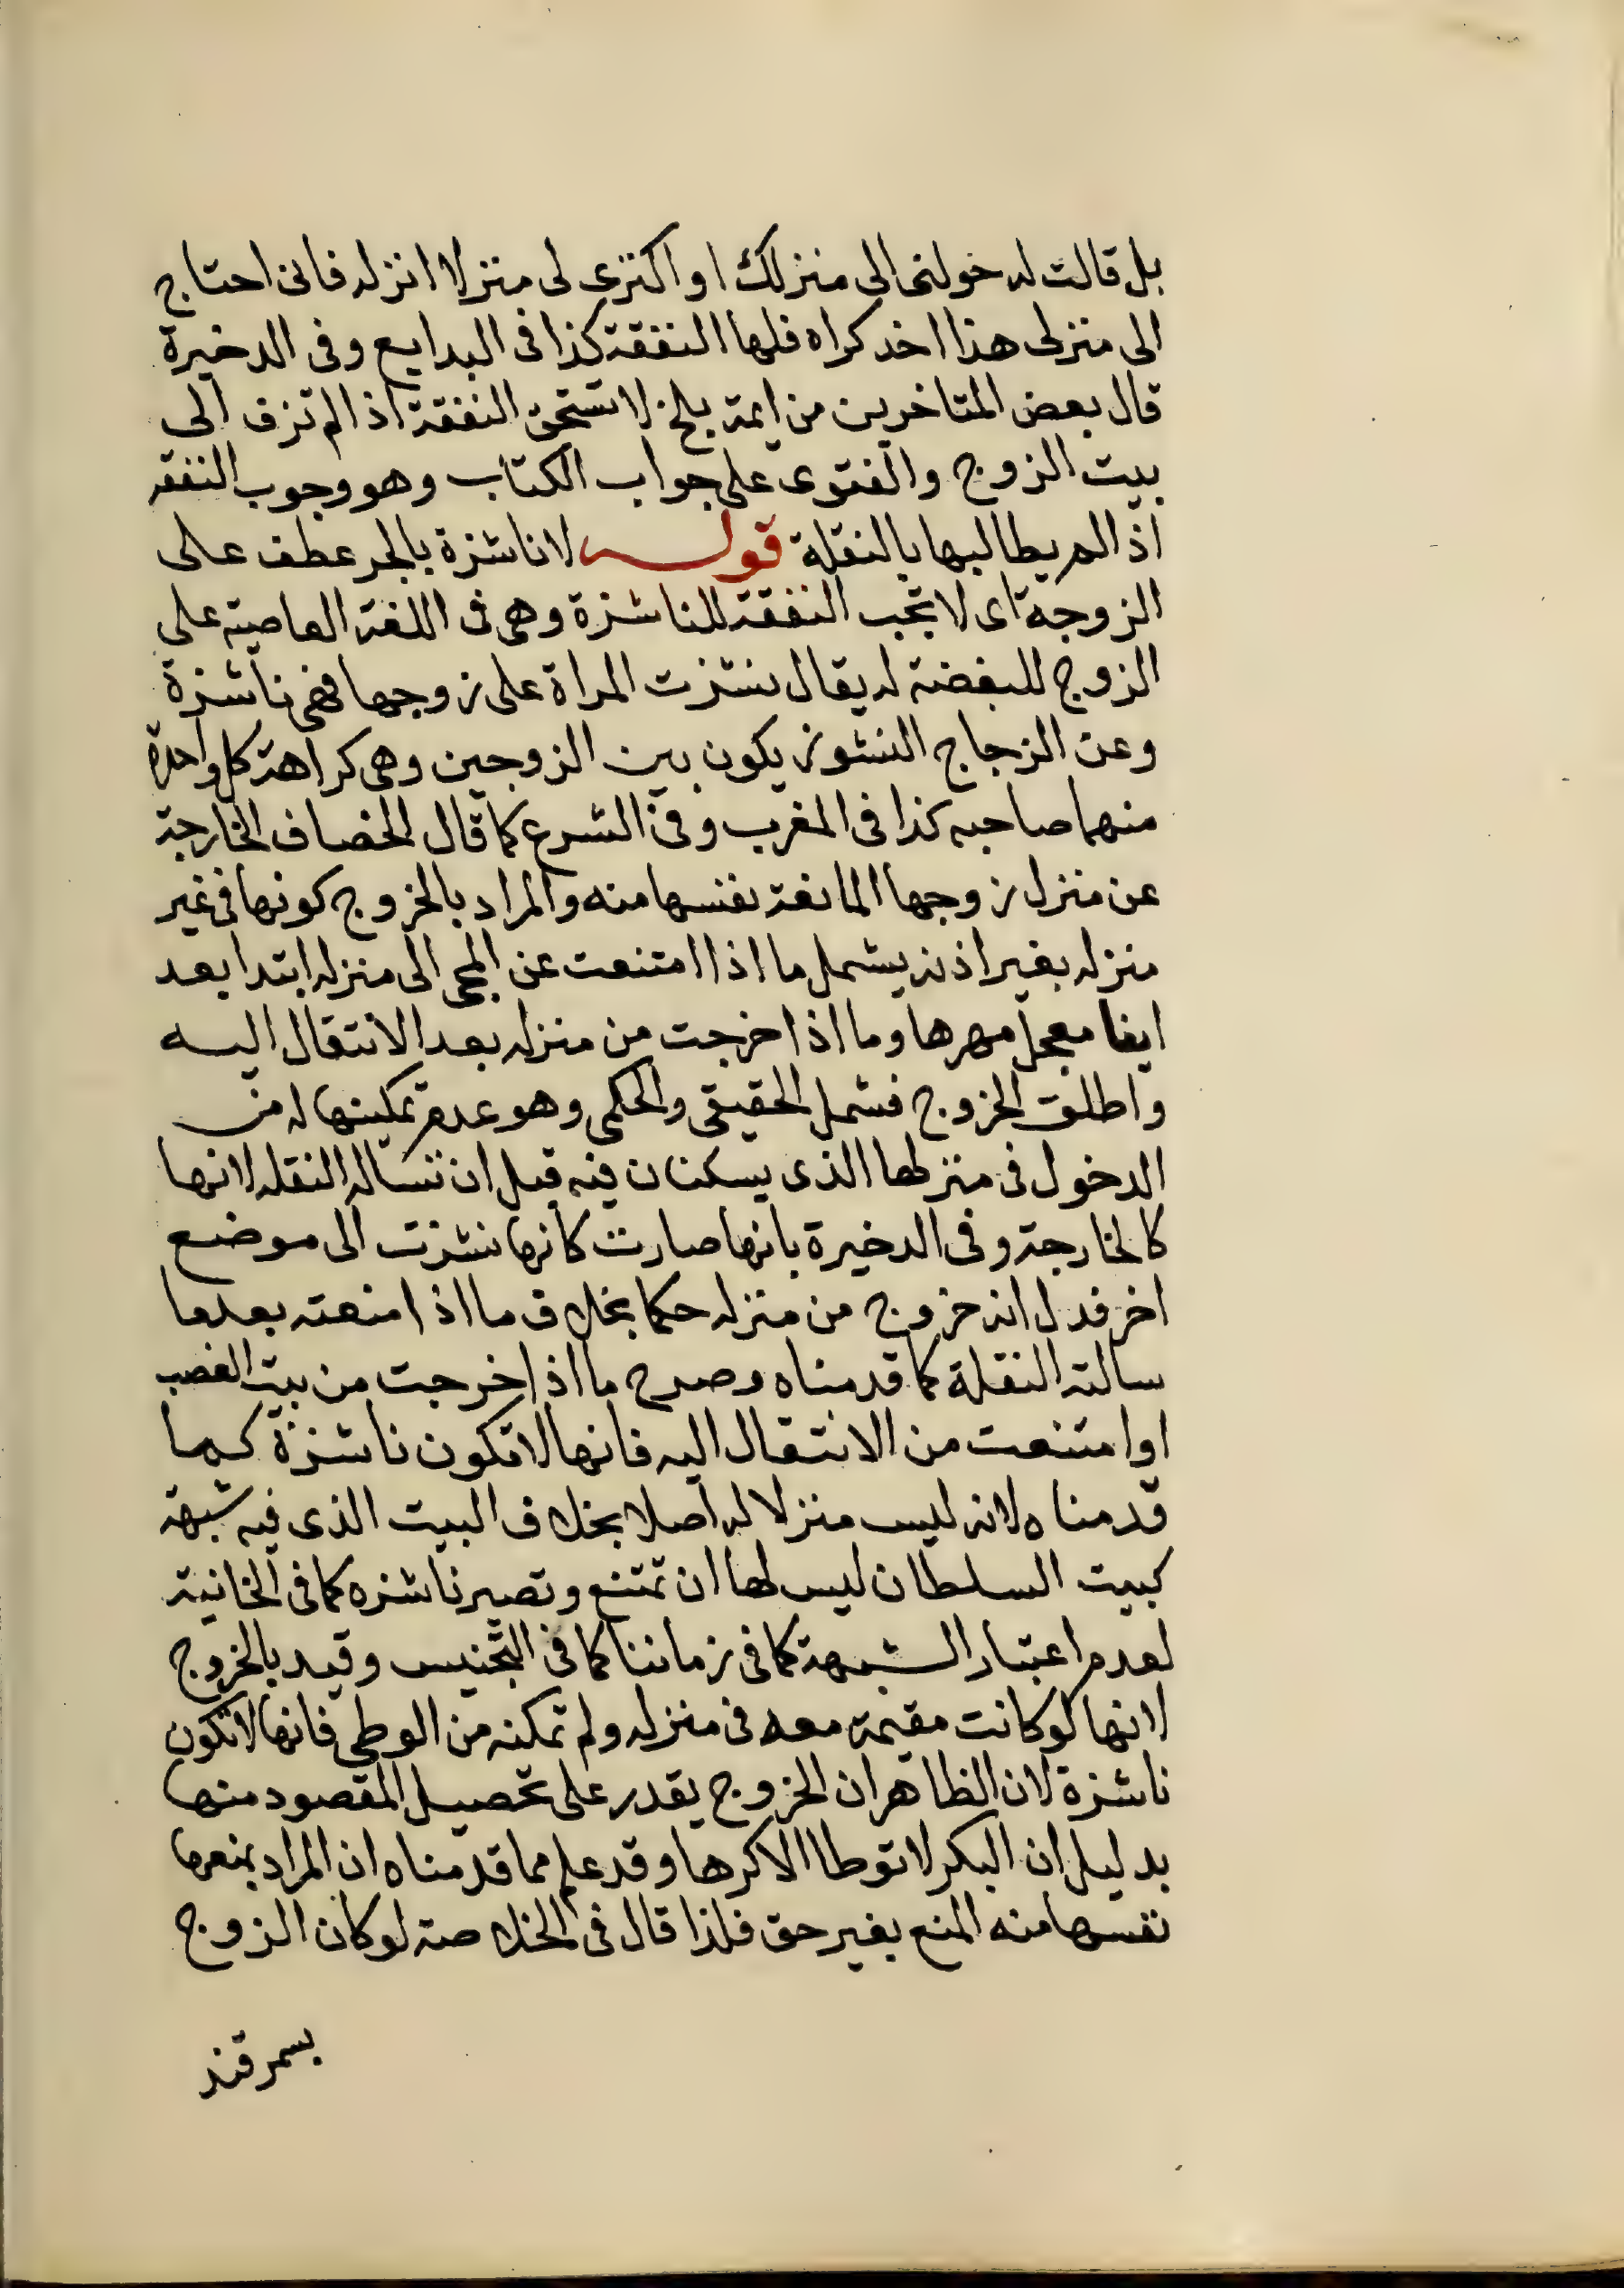 بل قالت له حولنى الى منزلك او اكترى لى منزلا انزله فانى احتاج
الى منزلى هذا اخد كراه فلها النفقة كذا فى البدايع وفى الدخيرة
قال بعض المتاخرين من ايمة بلخ لا تستحق النفقة اذ الم تزف الى
بيت الزوج والفتوى على جواب الكتاب وهو وجوب النفقه
اذ الم يطالبها بالنقلة قوله لا ناشزة بالجر عطف على
الزوجة اى لا تجب النفقة للناشزة وهى فى اللغة العاصية على
الزوج المبغضة له يقال نشزت المراة على زوجها فهى ناشزة
وعن الزجاج النشوز يكون بين الزوجين وهى كراهة كل واحدة
منهما صاحبه كذا فى المغرب وفى الشرع كما قال الخصاف الخارجة
عن منزل زوجها المانعة نفسها منه والمراد بالخروج كونها فى غير
منزله بغير اذنه يشمل ما اذا امتنعت عن المجى الى منزله ابتدا بعد
ايفا معجل مهرها وما اذا خرجت من منزله بعد الانتقال اليه
واطلق الخروج فشمل الحقيقى والحكمى وهو عدم تمكينها له من
الدخول فى منزلها الذى يسكنان فيه قبل ان تساله النقله لانها
كالخارجة وفى الدخيرة بانها صارت كانها نشزت الى موضع
اخر فدل انه خروج من منزله حكما بخلاف ما اذا منعته بعدما
سالته النقلة كما قدمناه وصرح ما اذا خرجت من بيت الغصب
او امتنعت من الانتقال اليه فانها لا تكون ناشزة كما
قدمناه لانه ليس منزلا له اصلا بخلاف البيت الذى فيه شبهة
كبيت السلطان ليس لها ان تمتنع وتصير ناشزه كما فى الخانية
لعدم اعتبار الشبهة كما فى زماننا كما فى التجنيس وقيد بالخروج
لانها لو كانت مقيمة معه فى منزله ولم تمكنه من الوطى فانها لا تكون
ناشزة لان الظاهر ان الخروج يقدر على تحصيل المقصود منها
بدليل ان البكر لا توطا الا كرها وقد علم مما قدمناه ان المراد بمنعها
نفسها منه المنع بغير حق فلذا قال فى الخلاصة لو كان الزوج
بسمرقند